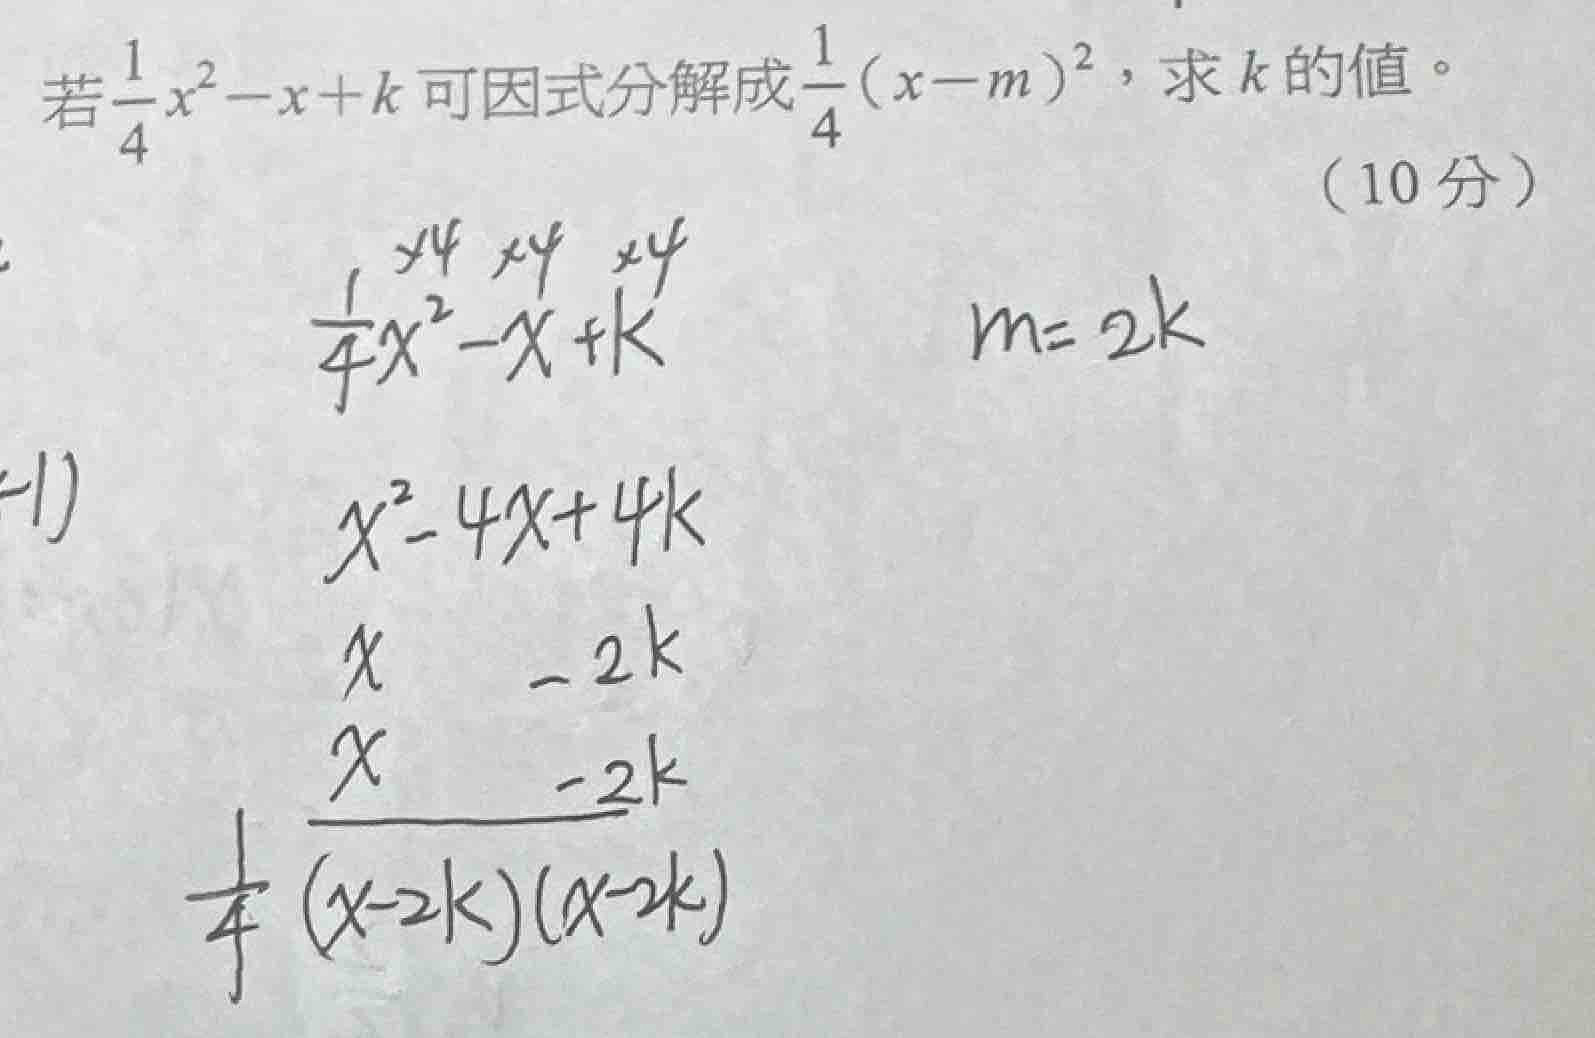 若 1/4 x² − x + k 可因式分解成 1/4 (x − m)²，求 k 的值。
（10 分）
×4 ×4 ×4
1/4 x² − x + k
m = 2k
-1)
x² − 4x + 4k
x − 2k
x − 2k
1/4 (x − 2k)(x − 2k)